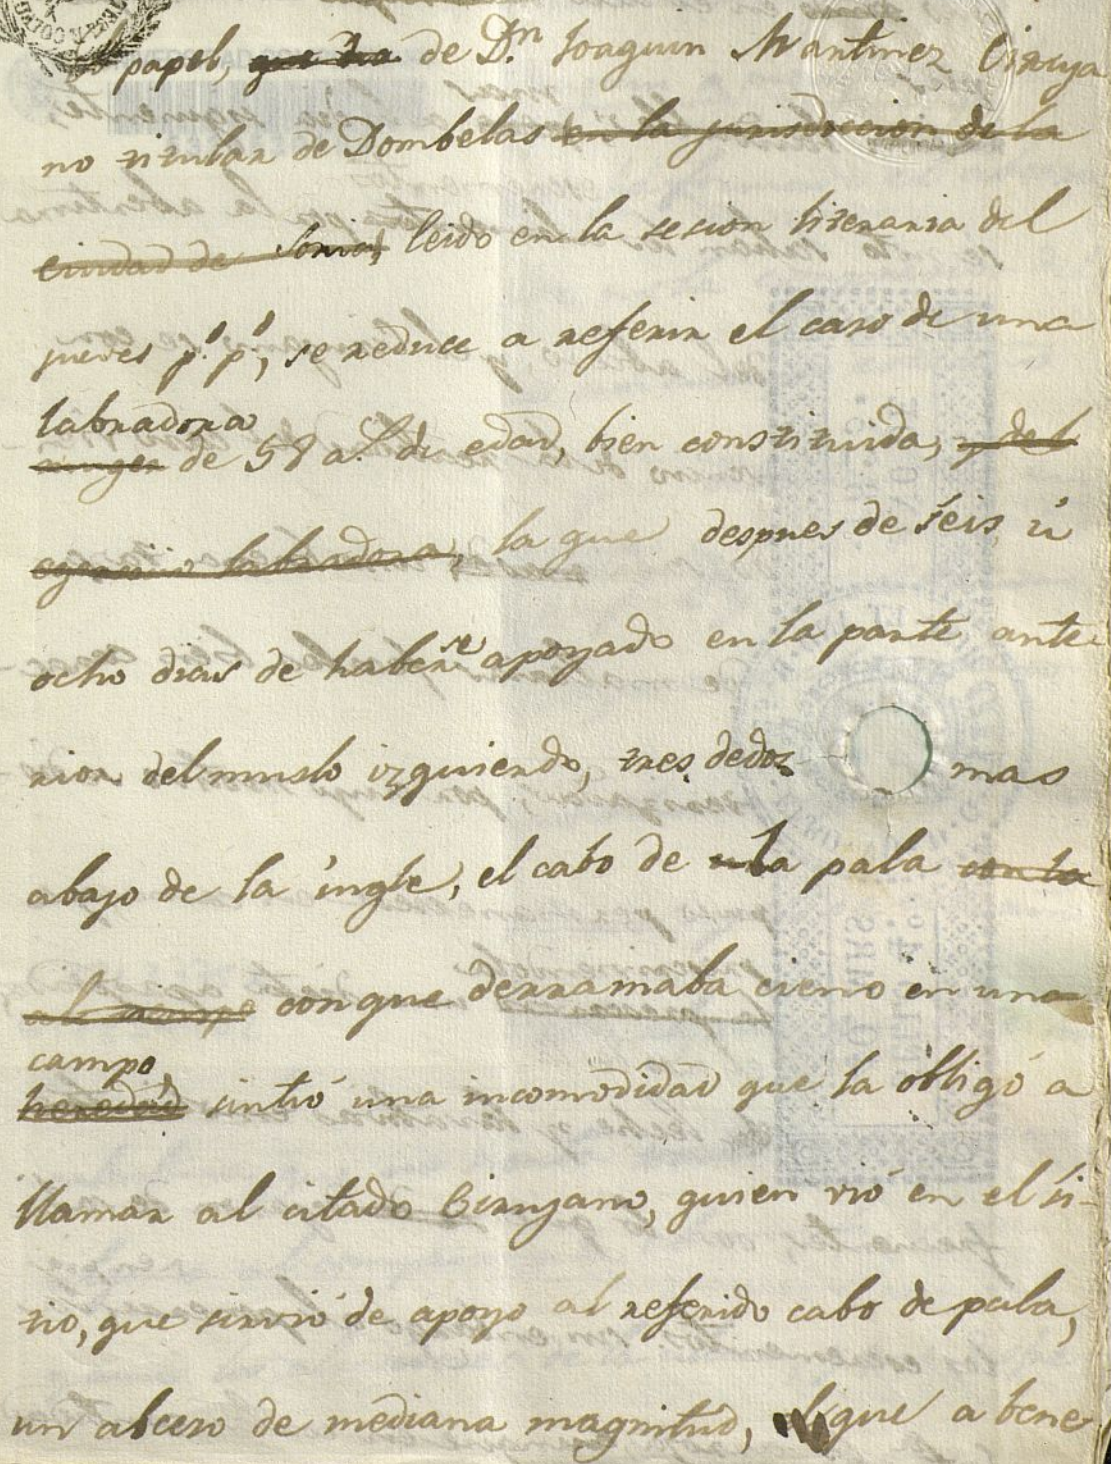 papel, que ha de D.n Joaquin Martinez Ciruja
no titular de Dombelas en la jurisdiccion de la
ciudad de Soria, leido en la sesion literaria del
jueves p.o p.o, se reduce a referir el caso de una
labradora
muger de 58 a.s de edad, bien constituida, y de
egercicio labradora, la que despues de seis, ú
ocho dias de haberse apoyado en la parte ante
rior del muslo izquierdo, tres dedos mas
abajo de la ingle, el cabo de la pala con la
al tiempo con que derramaba cieno en una
campo
heredad sintió una incomodidad que la obligó a
llamar al citado Cirujano, quien vió en el si-
tio, que sirvió de apoyo al referido cabo de pala,
un abceso de mediana magnitud, que a bene